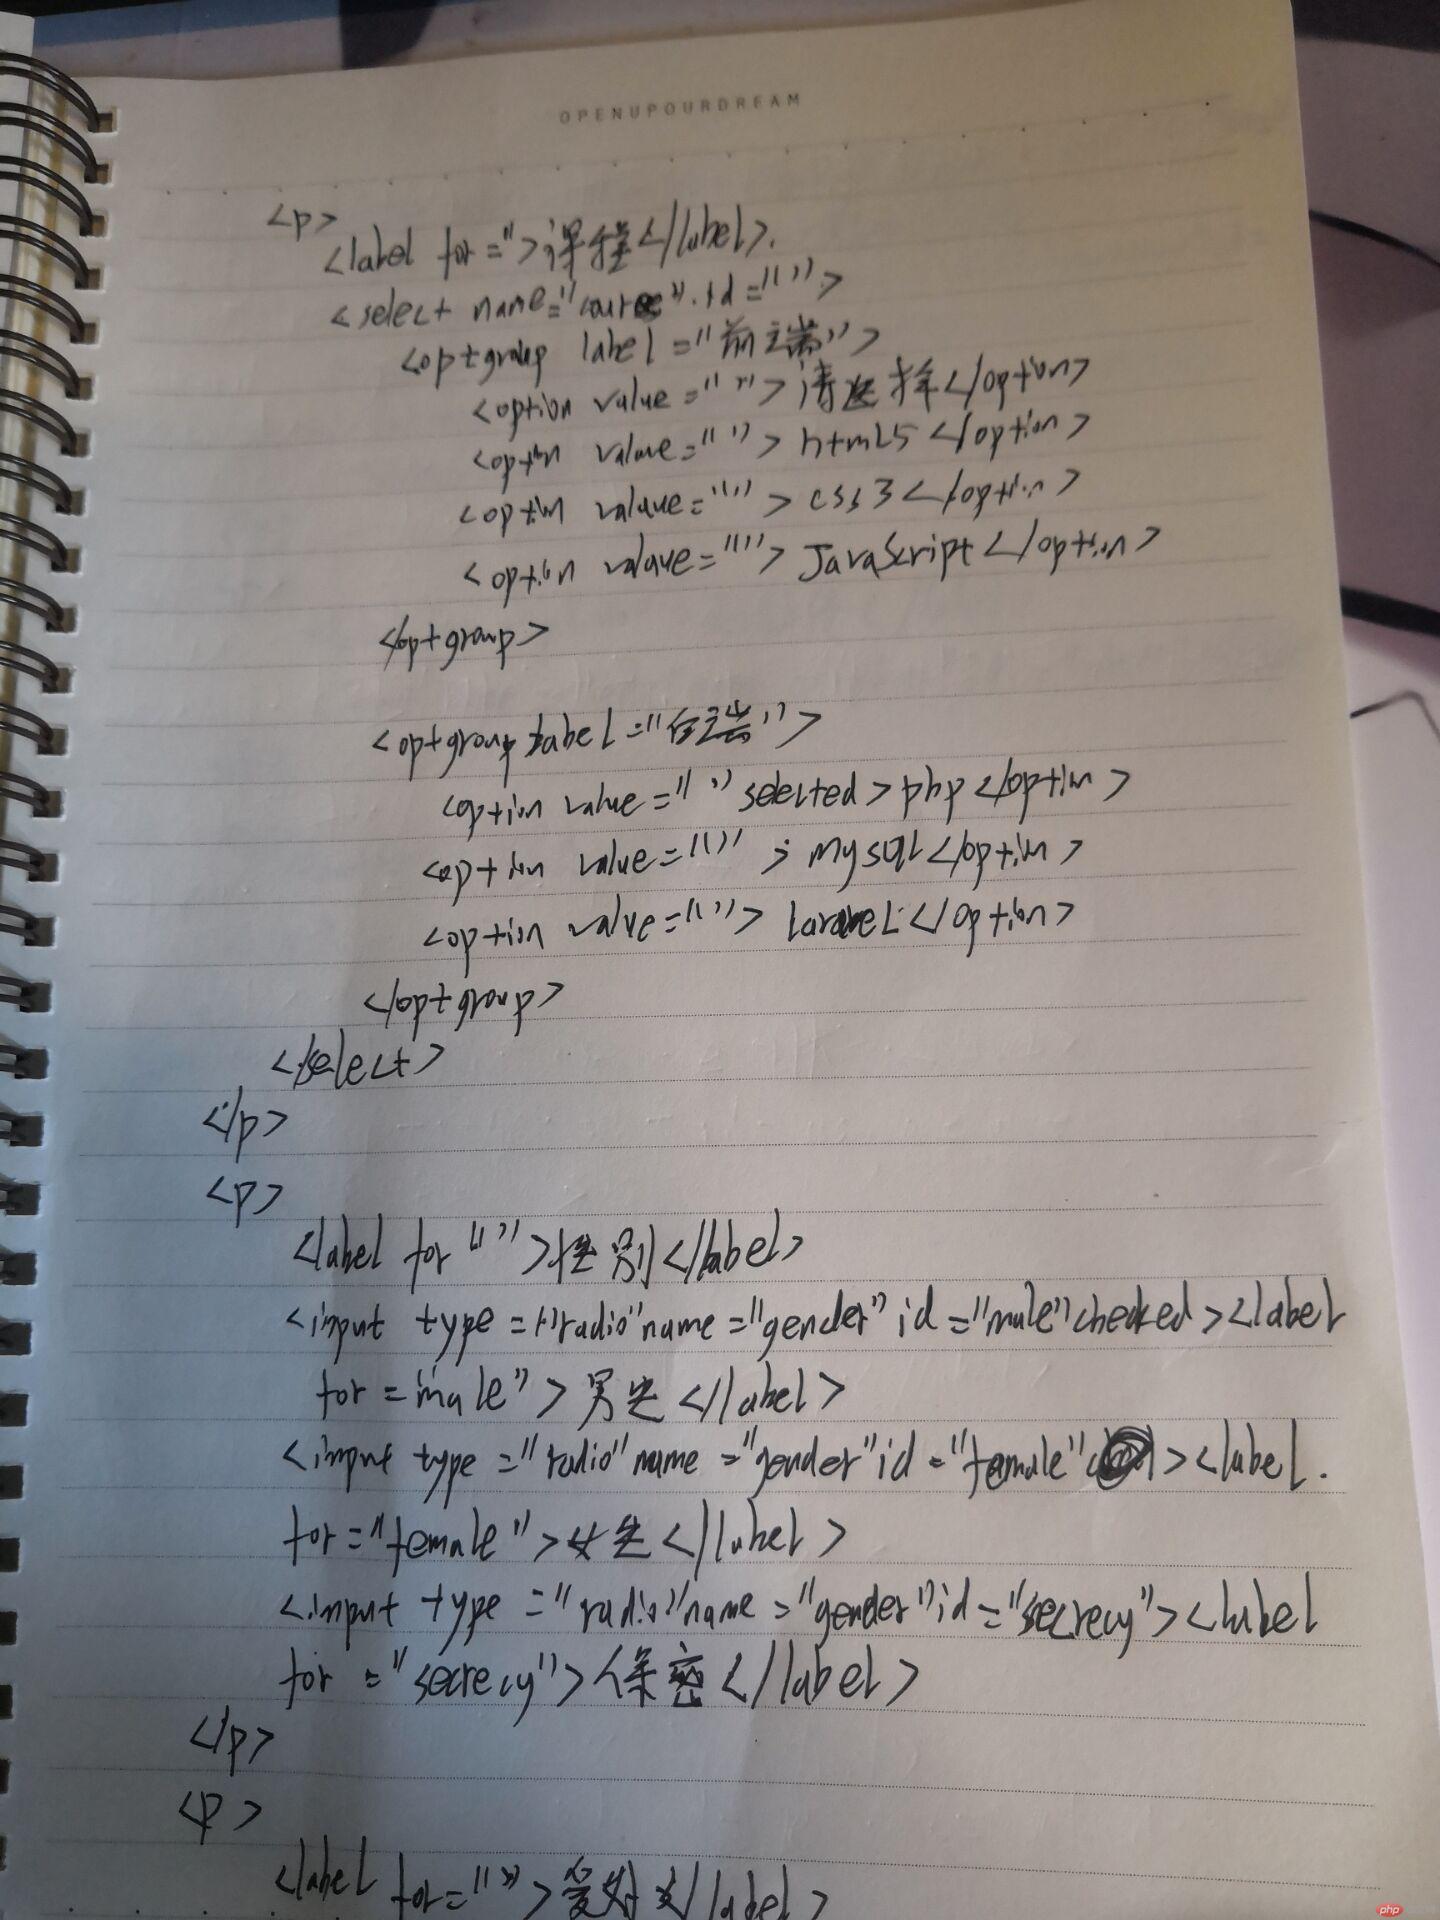 OPENUPOURDREAM
<p>
<label for="">课程</label>
<select name="course" id="">
<optgroup label="前端">
<option value="">请选择</option>
<option value="">html5</option>
<option value="">css3</option>
<option value="">JavaScript</option>
</optgroup>
<optgroup label="后端">
<option value="" selected>php</option>
<option value="">mysql</option>
<option value="">laravel</option>
</optgroup>
</select>
</p>
<p>
<label for "">性别</label>
<input type="radio" name="gender" id="male" checked><label
for="male">男生</label>
<input type="radio" name="gender" id="female" ><label
for="female">女生</label>
<input type="radio" name="gender" id="secrecy"><label
for="secrecy">保密</label>
</p>
<p>
<label for="">爱好</label>
php